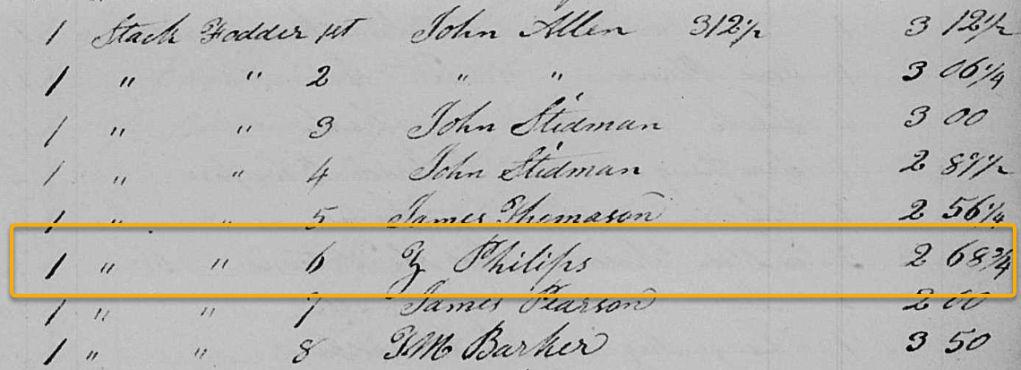 1 Stack Fodder 1st John Allen 312 1/2 3 12 1/2
1 " " 2 " " 3 06 1/4
1 " " 3 John Stidman 3 00
1 " " 4 John Stidman 2 87 1/2
1 " " 5 James Thomason 2 56 1/4
1 " " 6 Z Philips 2 68 3/4
1 " " 7 James Pearson 2 00
1 " " 8 T M Barker 3 50